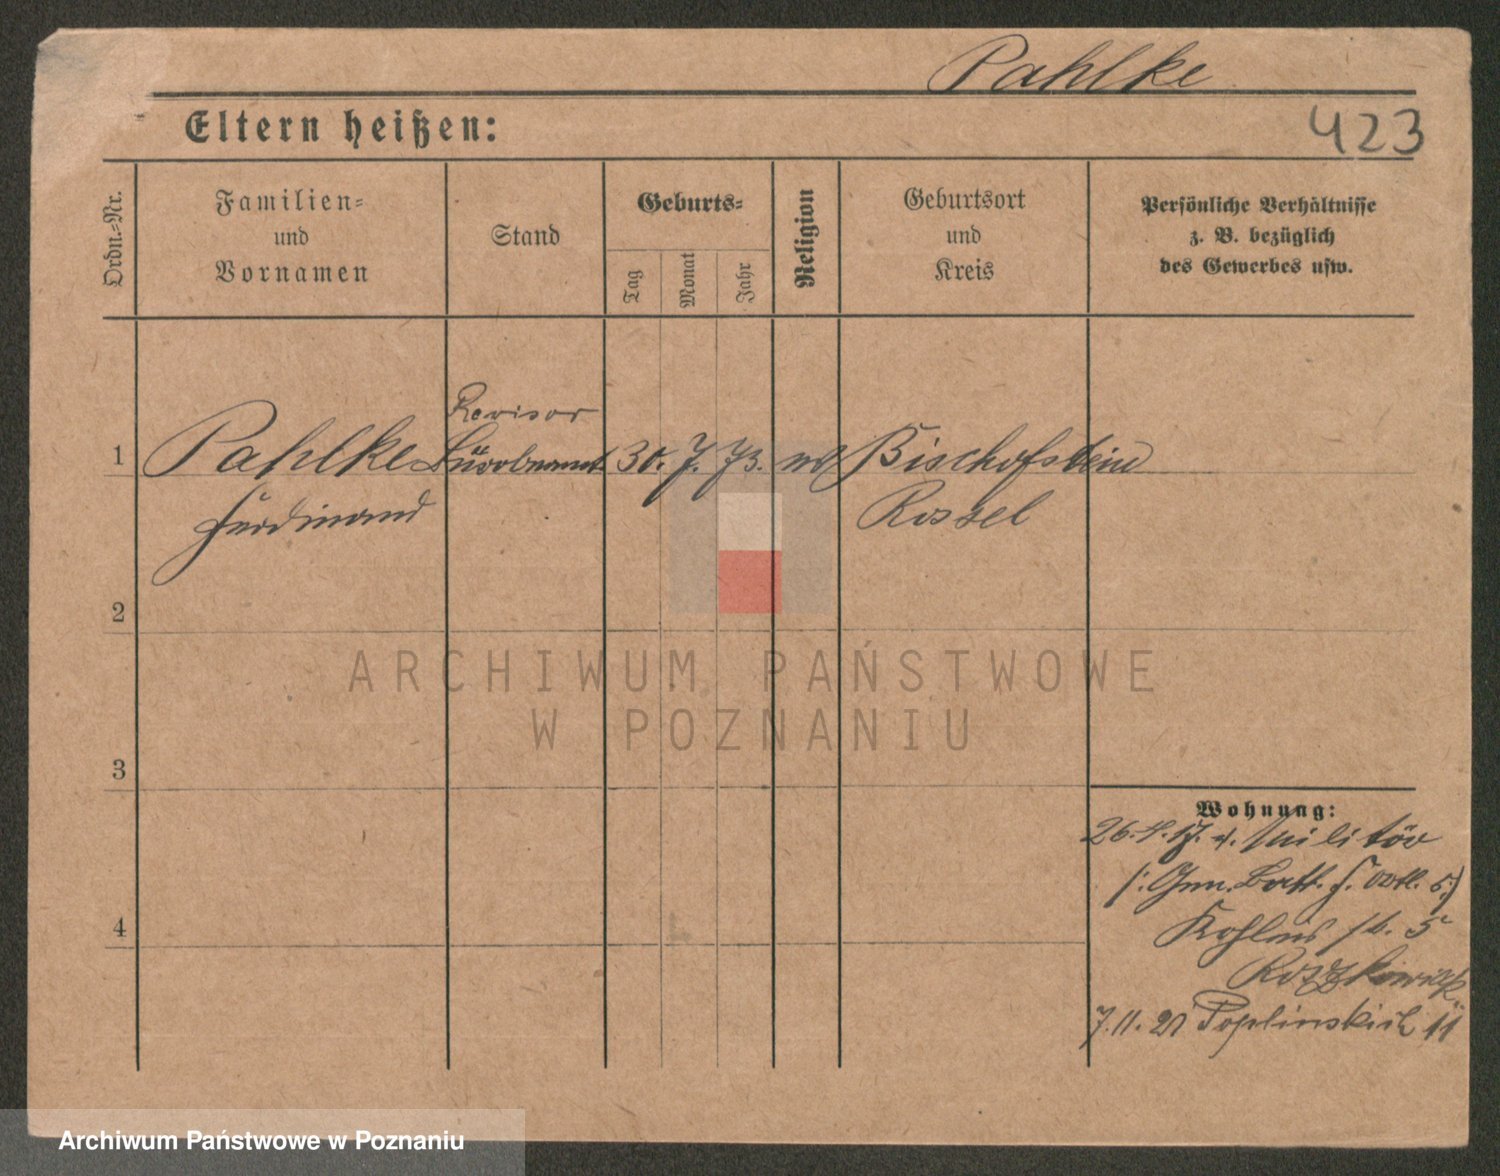 Pahlke
423
Eltern heißen:
Ordn.-Nr.
Familien-
und
Vornamen
Stand
Geburts-
Tag
Monat
Jahr
Religion
Geburtsort
und
Kreis
Persönliche Verhältnisse
z. B. bezüglich
des Gewerbes usw.
Revisor
1 Pahlke 30. 7. 73. Bischofstein
Ferdinand Rossel
2
3
4
ARCHIWUM PAŃSTWOWE
W POZNANIU
Wohnung:
26.4.17. v. Militär
5
7.11.21 Poplinskich 11
Archiwum Państwowe w Poznaniu